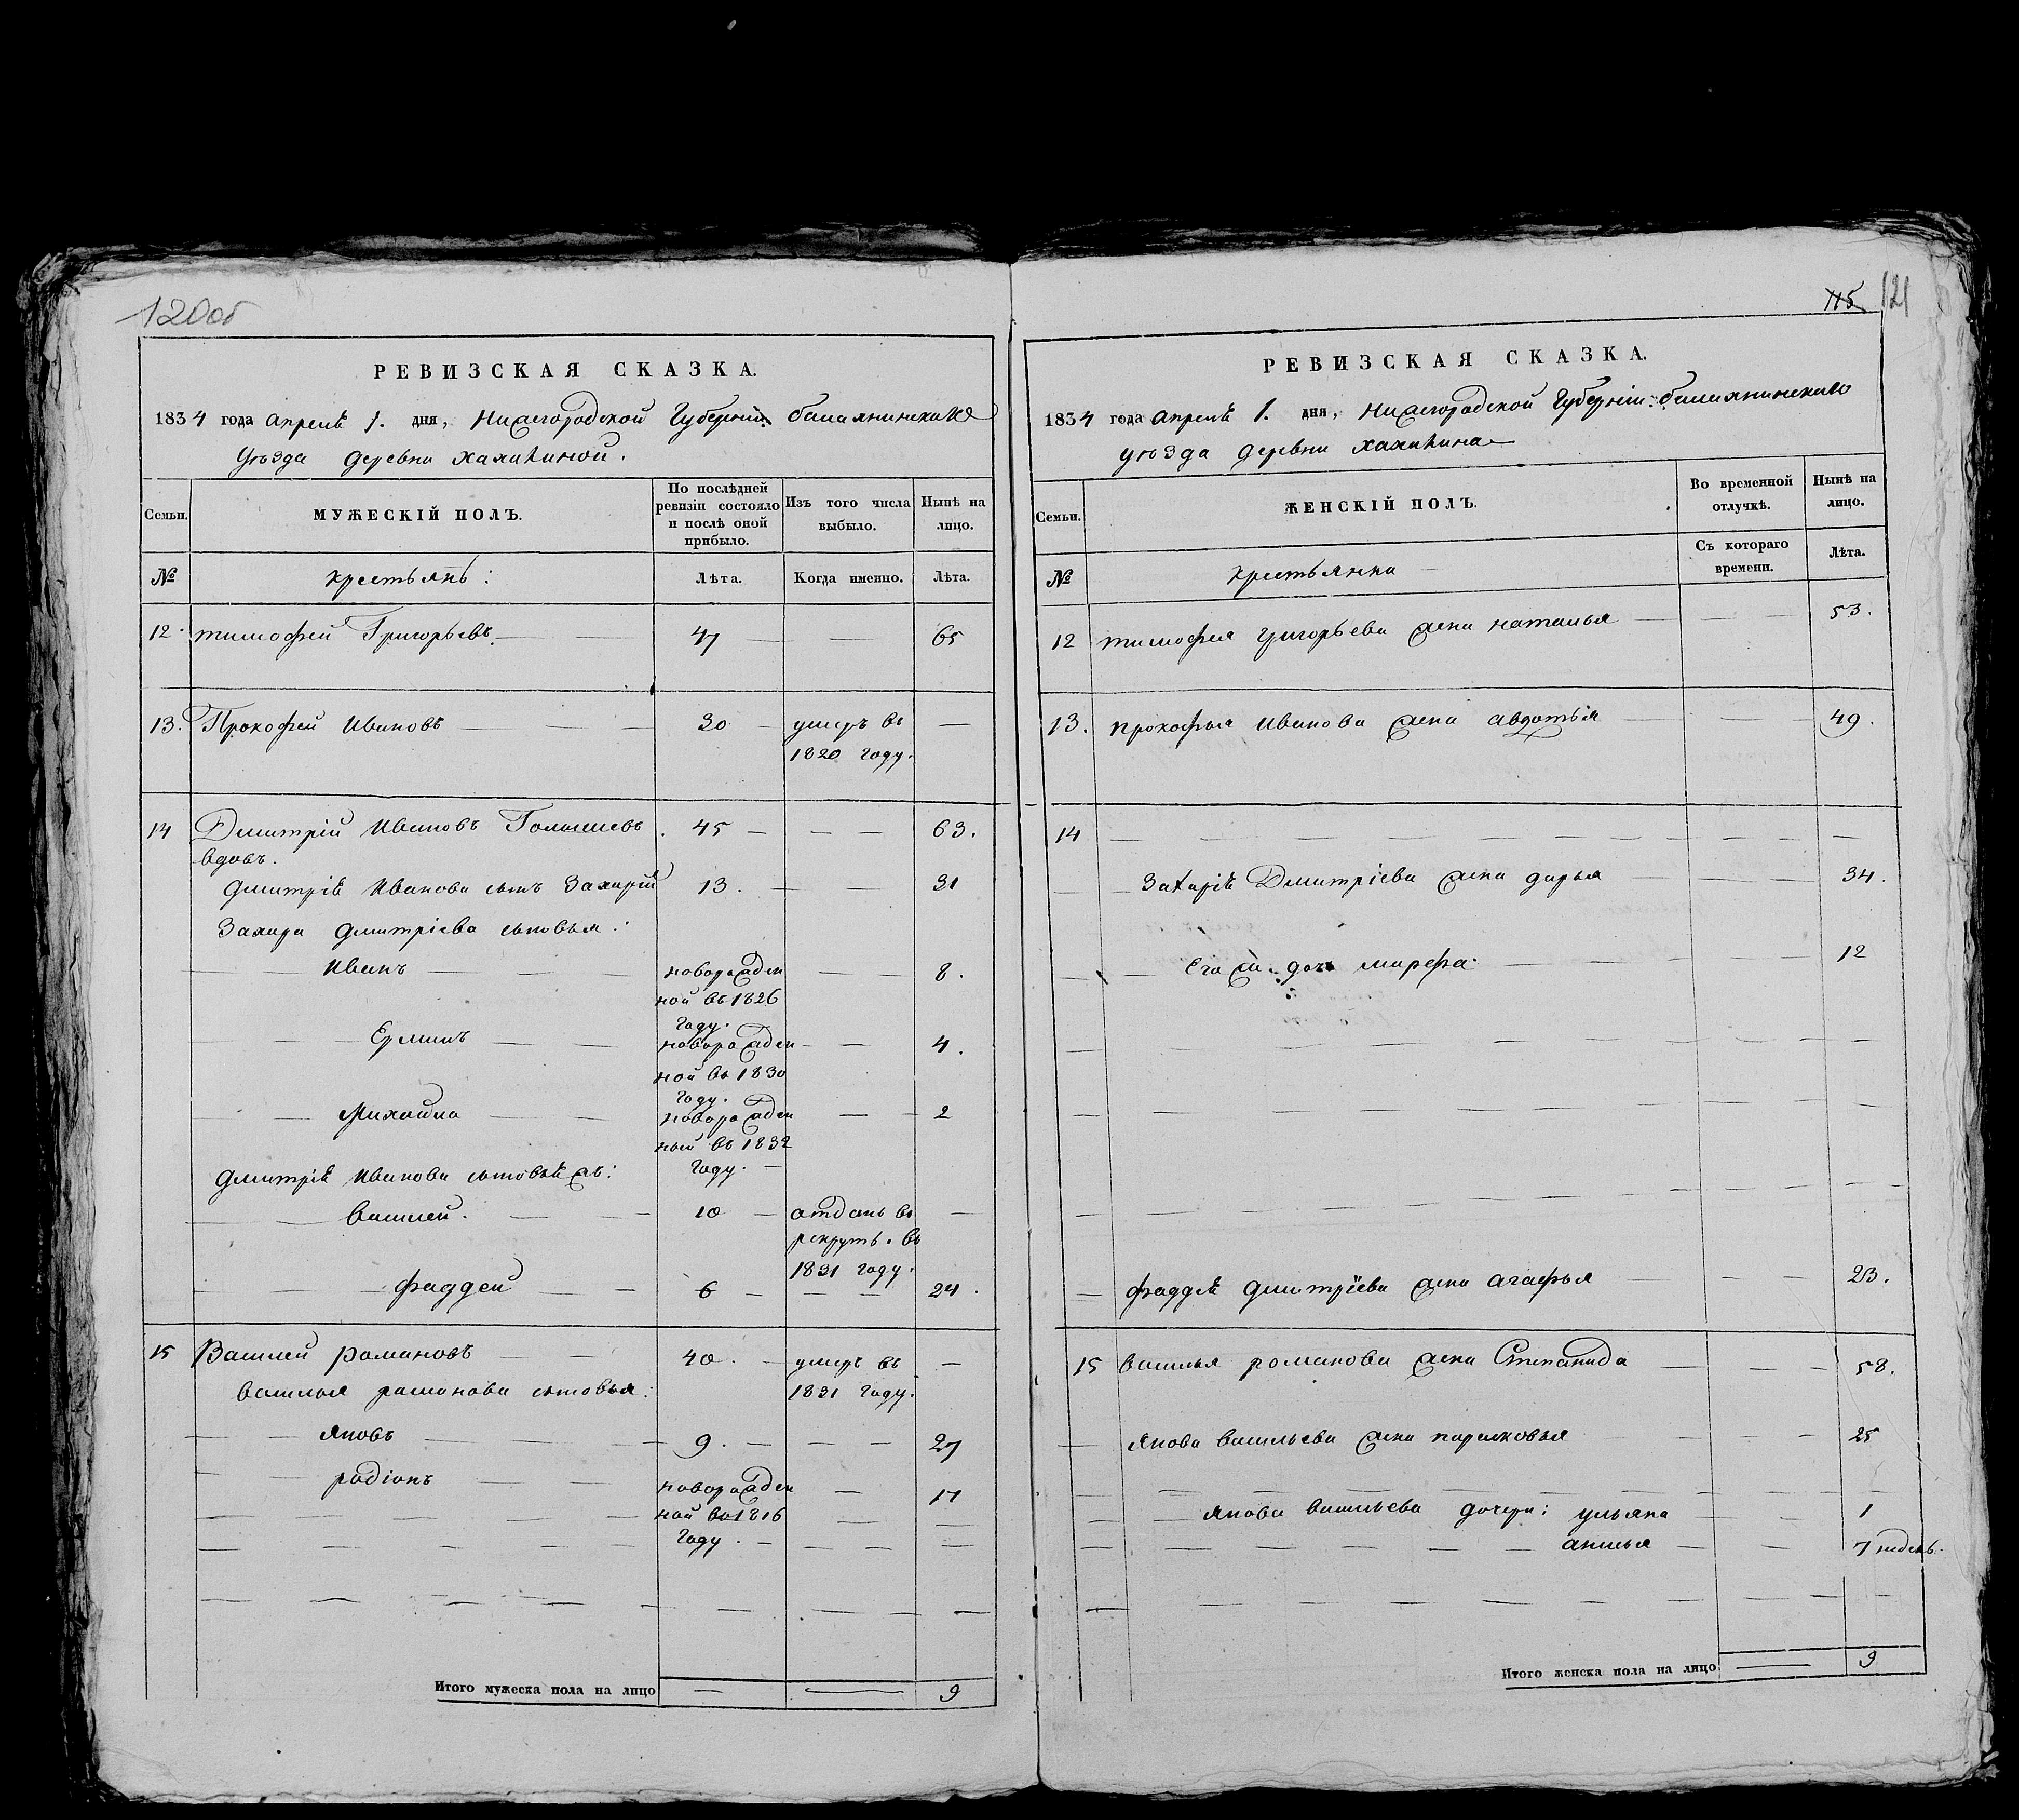 120об
РЕВИЗСКАЯ СКАЗКА.
1834 года апрелѣ 1. дня, Нижегородской Губерніи балахнинскаго
Уѣзда деревни халикиной.
Семьи.
МУЖЕСКІЙ ПОЛЪ.
По послѣдней ревизіи состояло и послѣ оной прибыло.
Изъ того числа выбыло.
Нынѣ на лицо.
№
крестьянъ:
Лѣта.
Когда именно.
Лѣта.
12. тимофей Григорьевъ 47 — 65
13. Прокофей Ивановъ — 30 — умеръ въ —
1820 году.
14 Дмитрій Ивановъ . 45 — — — 63.
вдовъ.
дмитріѣ Иванова сынъ Захарій 13. — — 31
Захара дмитріева сыновья:
Иванъ новорожден — — 8.
ной въ 1826
году.
Ермилъ новорожден — — 4.
ной въ 1830
году.
Михайла новорожден — — 2
ной въ 1832
году. —
дмитріѣ Иванова сыновьѣжъ:
василей. — 10 — отданъ въ —
рекрутъ. въ
1831 году.
фаддей — 6 — — — 24.
15 Василей романовъ — 40. — умеръ въ —
василья романова сыновья: 1831 году.
яковъ — 9. — — — 27
родіонъ новорожден — 17
ной во 1816
году. —
Итого мужеска пола на лицо — — 9
115 121
РЕВИЗСКАЯ СКАЗКА.
1834 года апрелѣ 1. дня, Нижегородской Губерніи: балахнинскаго
уѣзда деревни халикина
Семьи.
ЖЕНСКІЙ ПОЛЪ.
Во временной отлучкѣ.
Нынѣ на лицо.
№
крестьянка
Съ котораго времени.
Лѣта.
12 тимофея григорьева жена наталья — 53.
13. прокофья Иванова жена авдотья — 49.
14
Захаріѣ Дмитріева жена дарья — 34.
Его ж. дочь марфа — 12
фаддѣѣ дмитріева жена агафья — 23.
15 василья романова жена Степанида — 58.
якова васильева жена парасковья — 25
якова васильева дочери: ульяна — 1
анисья — 7 недель.
Итого женска пола на лицо — 9